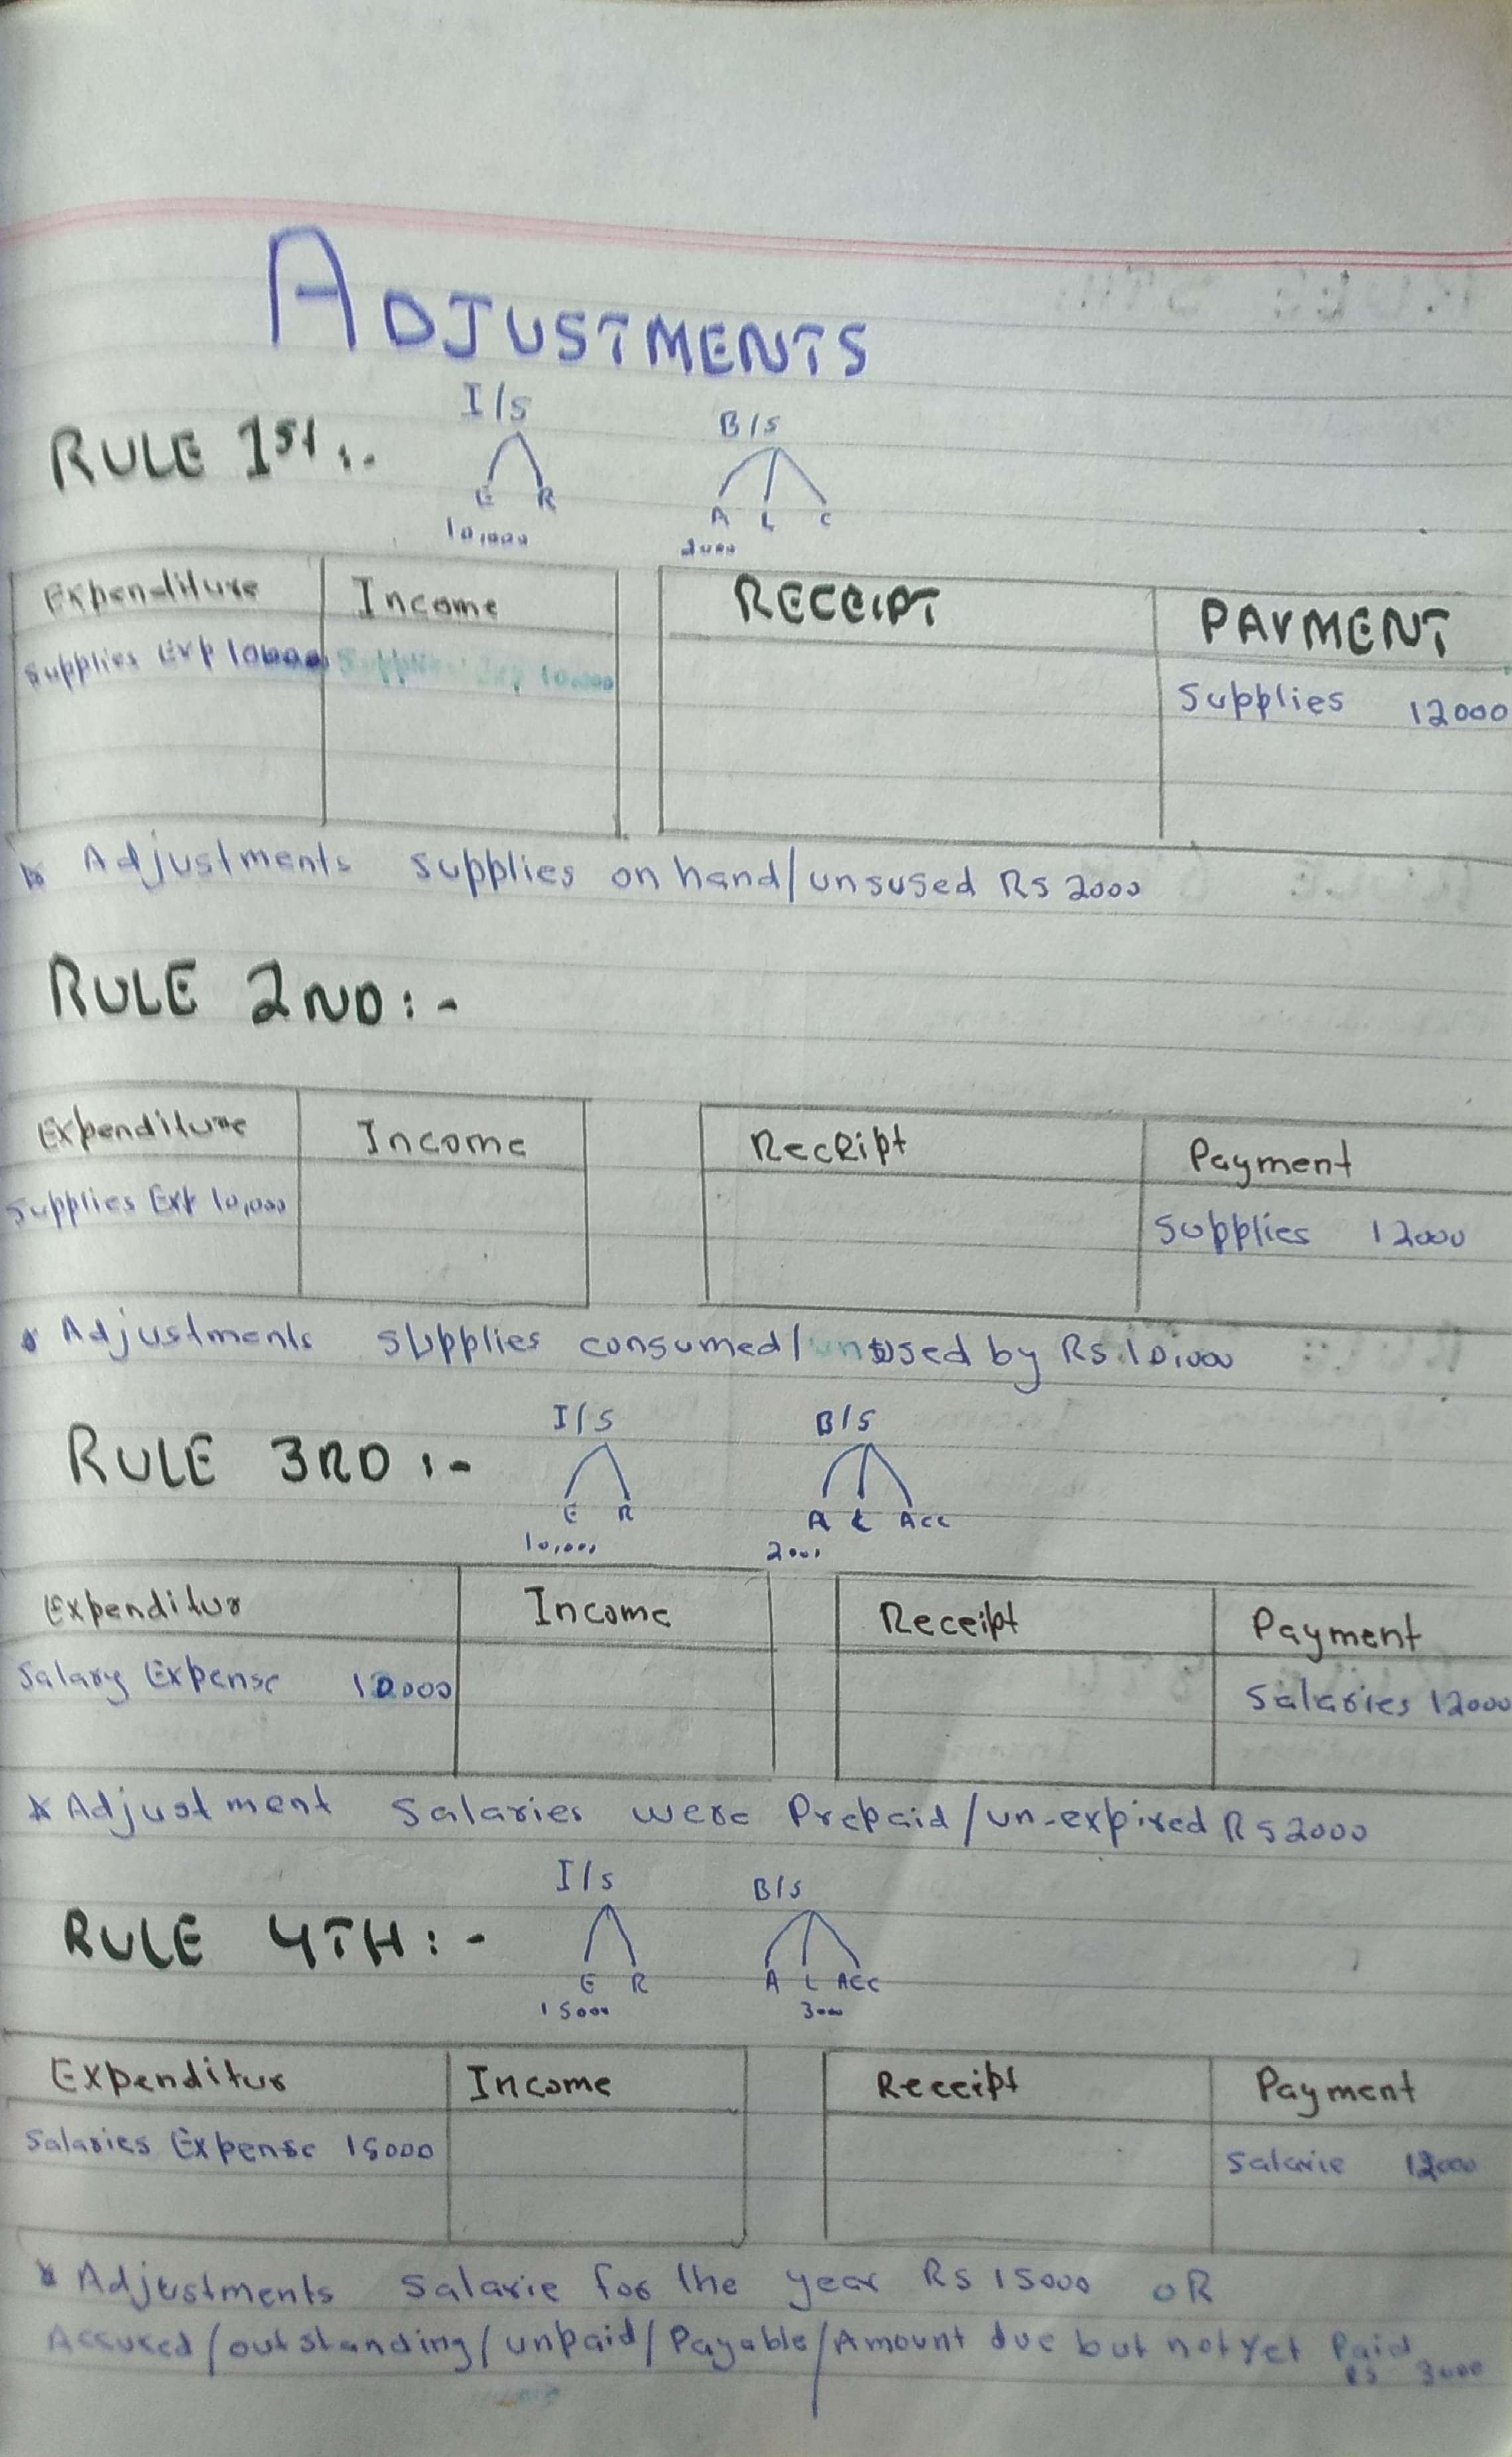 ADJUSTMENTS
RULE 1st :-
I/S
E R
10,000
B/S
A L C
2000
Expenditure Income RECEIPT PAYMENT
Supplies Exp 10000 Supplies Exp 10,000 Supplies 12000
Adjustments supplies on hand/unsused Rs 2000
RULE 2ND :-
Expenditure Income Receipt Payment
Supplies Exp 10,000 Supplies 12000
Adjustments supplies consumed/used by Rs 10,000
RULE 3RD :-
I/S
E R
10,000
B/S
A L Acc
2000
Expenditur Income Receipt Payment
Salary Expense 10000 Salaries 12000
Adjustment Salaries were Prepaid/un-expired Rs 2000
RULE 4TH :-
I/S
E R
15000
B/S
A L Acc
3000
Expenditur Income Receipt Payment
Salaries Expense 15000 Salarie 12000
Adjustments Salarie for the year Rs 15000 OR
Accured/outstanding/unpaid/Payable/Amount due but not yet Paid
Rs 3000